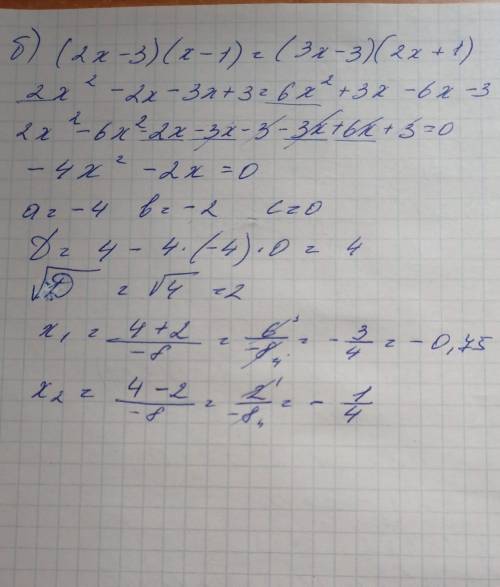 б) (2x-3)(x-1) = (3x-3)(2x+1)
2x² - 2x - 3x + 3 = 6x² + 3x - 6x - 3
2x² - 6x² - 2x - 3x - 3 - 3x + 6x + 3 = 0
-4x² - 2x = 0
a = -4 b = -2 c = 0
D = 4 - 4·(-4)·0 = 4
√D = √4 = 2
x₁ = (4+2)/(-8) = 6³/(-8₄) = -3/4 = -0,75
x₂ = (4-2)/(-8) = 2¹/(-8₄) = -1/4